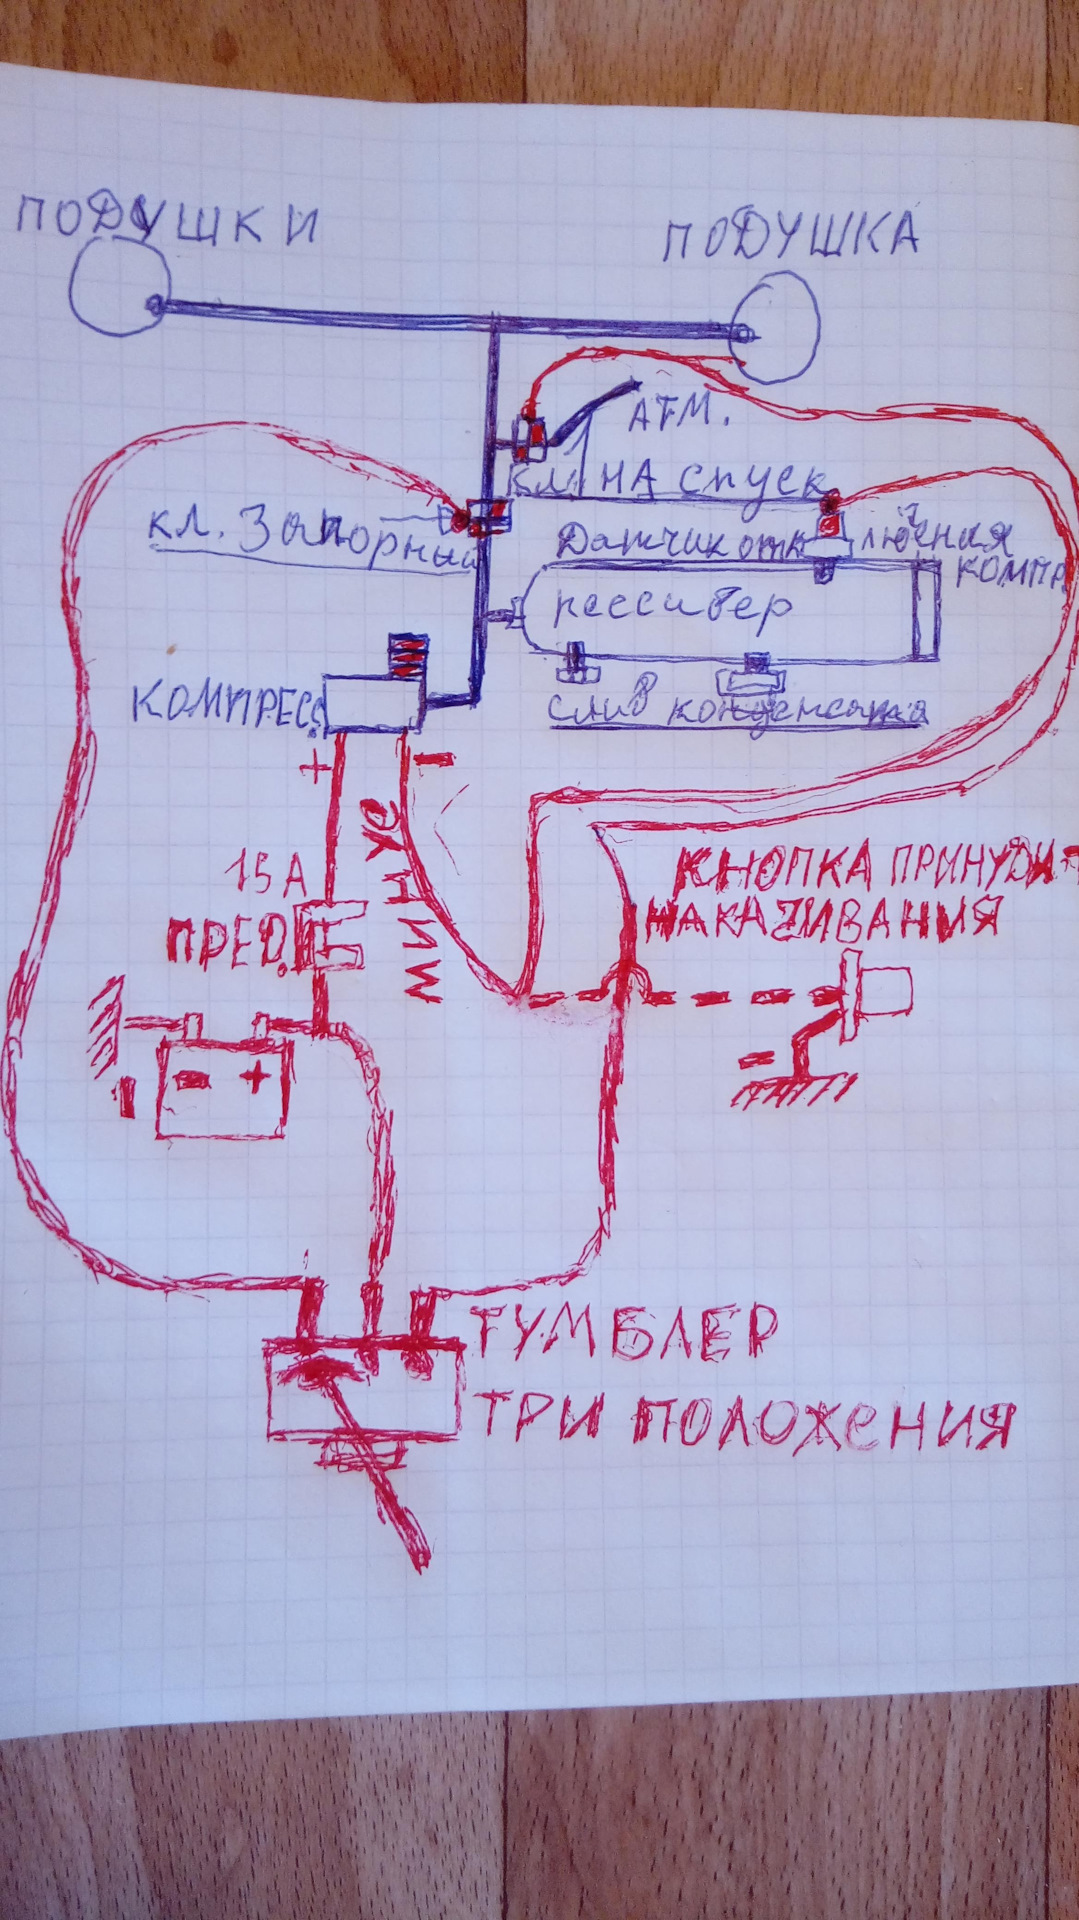 ПОДУШКИ
ПОДУШКА
АТМ.
КЛ. НА СПУСК
кл. Запорный
Датчик отключения
компр
рессивер
КОМПРЕСС.
слив конденсата
+ −
МИНУС
15А
ПРЕД.
КНОПКА ПРИНУДИТ
НАКАЧИВАНИЯ
− +
−
−
ТУМБЛЕР
ТРИ ПОЛОЖЕНИЯ